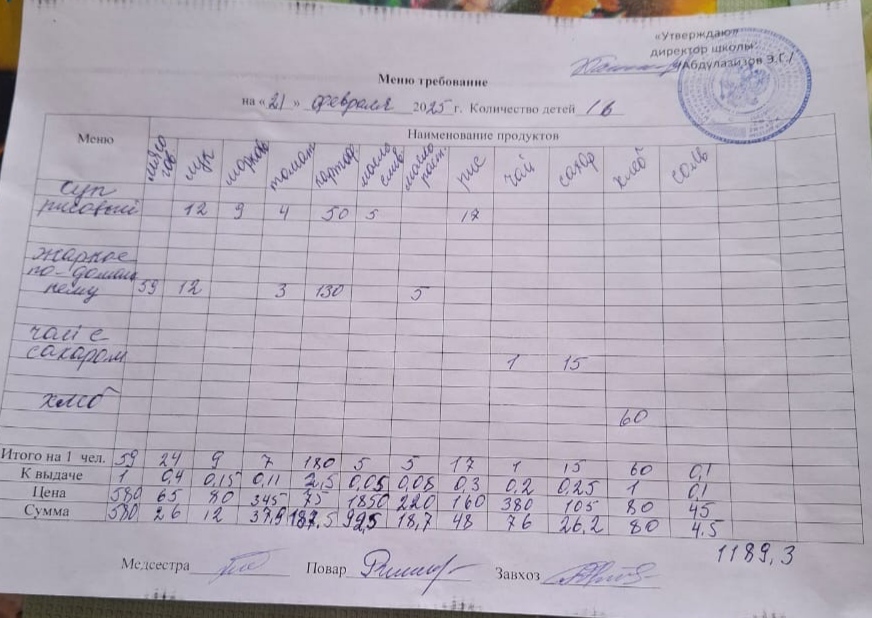 «Утверждаю»
директор школы:
/Абдулазизов Э.Г./
Меню требование
на «21» февраля 2025 г. Количество детей 16
Меню Наименование продуктов
мясо гов. лук морковь томат картоф масло слив масло раст. рис чай сахар хлеб соль
Суп
рисовый 12 9 4 50 5 17
жаркое
по-домаш
нему 59 12 3 130 5
чай с
сахаром 1 15
хлеб 60
Итого на 1 чел. 59 24 9 7 180 5 5 17 1 15 60 0,1
К выдаче 1 0,4 0,15 0,11 2,5 0,05 0,08 0,3 0,2 0,25 1 0,1
Цена 580 65 80 345 75 1850 220 160 380 105 80 45
Сумма 580 26 12 37,9 187,5 92,5 18,7 48 76 26,2 80 4,5
1189,3
Медсестра Повар Завхоз